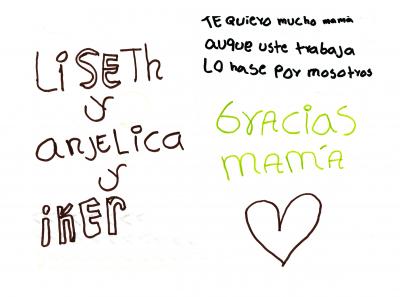 LiSETh
y
anjELica
y
iKEr
TE quiero mucho mamá
auque uste trabaja
LO hase por mosotros
Gracias
mamá